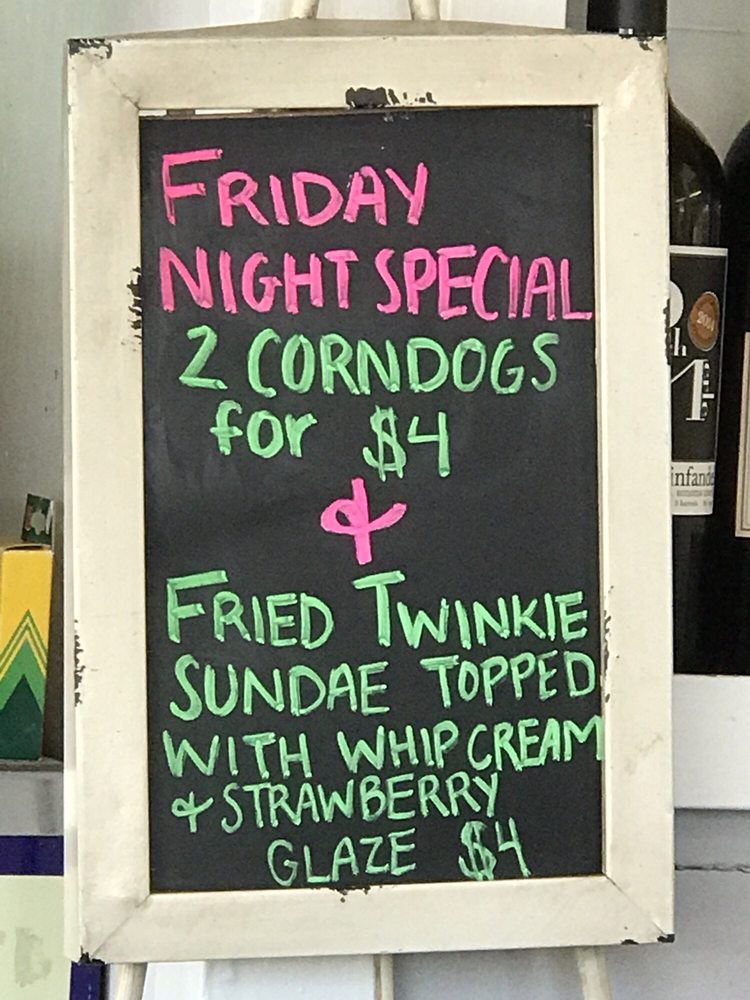 FRIDAY
NIGHT SPECIAL
2 CORNDOGS
for $4
&
FRIED TWINKIE
SUNDAE TOPPED
WITH WHIP CREAM
& STRAWBERRY
GLAZE $4
2014
infande